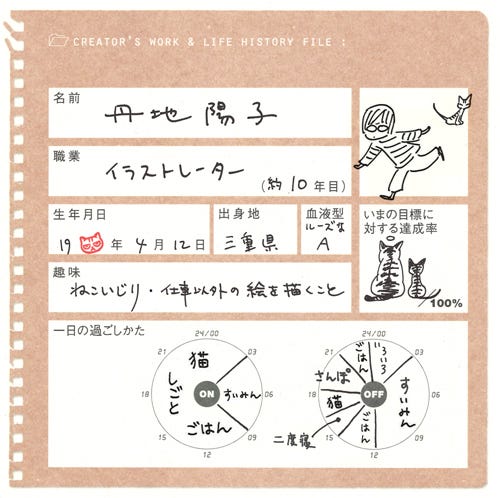 CREATOR'S WORK & LIFE HISTORY FILE :
名前
丹地陽子
職業
イラストレーター
(約10年目)
生年月日
19 年 4月12日
出身地
三重県
血液型
ルーズな
A
いまの目標に
対する達成率
100%
趣味
ねこいじり・仕事以外の絵を描くこと
一日の過ごしかた
24/00
21
03
18
06
15
09
12
猫
しごと
すいみん
ごはん
ON
24/00
21
03
18
06
15
09
12
ごはん
いろいろ
さんぽ
猫
すいみん
ごはん
二度寝
OFF